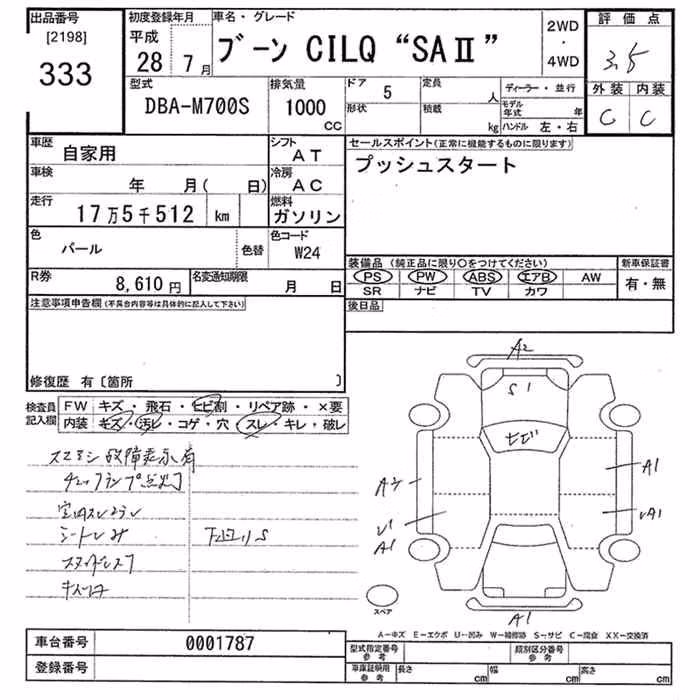 出品番号 初度登録年月 車名・グレード 2WD・4WD 評価点
[2198] 333
平成 28年 7月
ブーン CILQ “SAⅡ”
3.5
型式 DBA-M700S
排気量 1000 CC
ドア 5 定員 人 ディーラー・並行
形状 積載 kg モデル年式 年
ハンドル 左・右
外装 内装
C C
車歴 自家用
シフト AT
セールスポイント(正常に機能するものに限ります)
プッシュスタート
車検 年 月( 日)
冷房 AC
走行 17万5千512 km
燃料 ガソリン
色 パール 色替
色コード W24
装備品 (純正品に限り○をつけてください) 新車保証書
PS PW ABS エアB AW 有・無
SR ナビ TV カワ
R券 8,610円 名変通知期限 月 日
後日品
注意事項申告欄(不具合内容等は具体的に記入して下さい)
修復歴 有〔箇所 〕
検査員記入欄
FW キズ・飛石・ヒビ割・リペア跡・×要
内装 キズ・汚レ・コゲ・穴・スレ・キレ・破レ
故障表示有
チェックランプ点灯
シート
下回りS
A2
S1
ヒビ
A1
A1
A1
スペア
A-キズ E-エクボ U-凹み W-補修跡 S-サビ C-腐食 XX-交換済
車台番号 0001787
登録番号
型式指定番号 参考 類別区分番号 参考
車庫証明用 参考 長さ cm 幅 cm 高さ cm